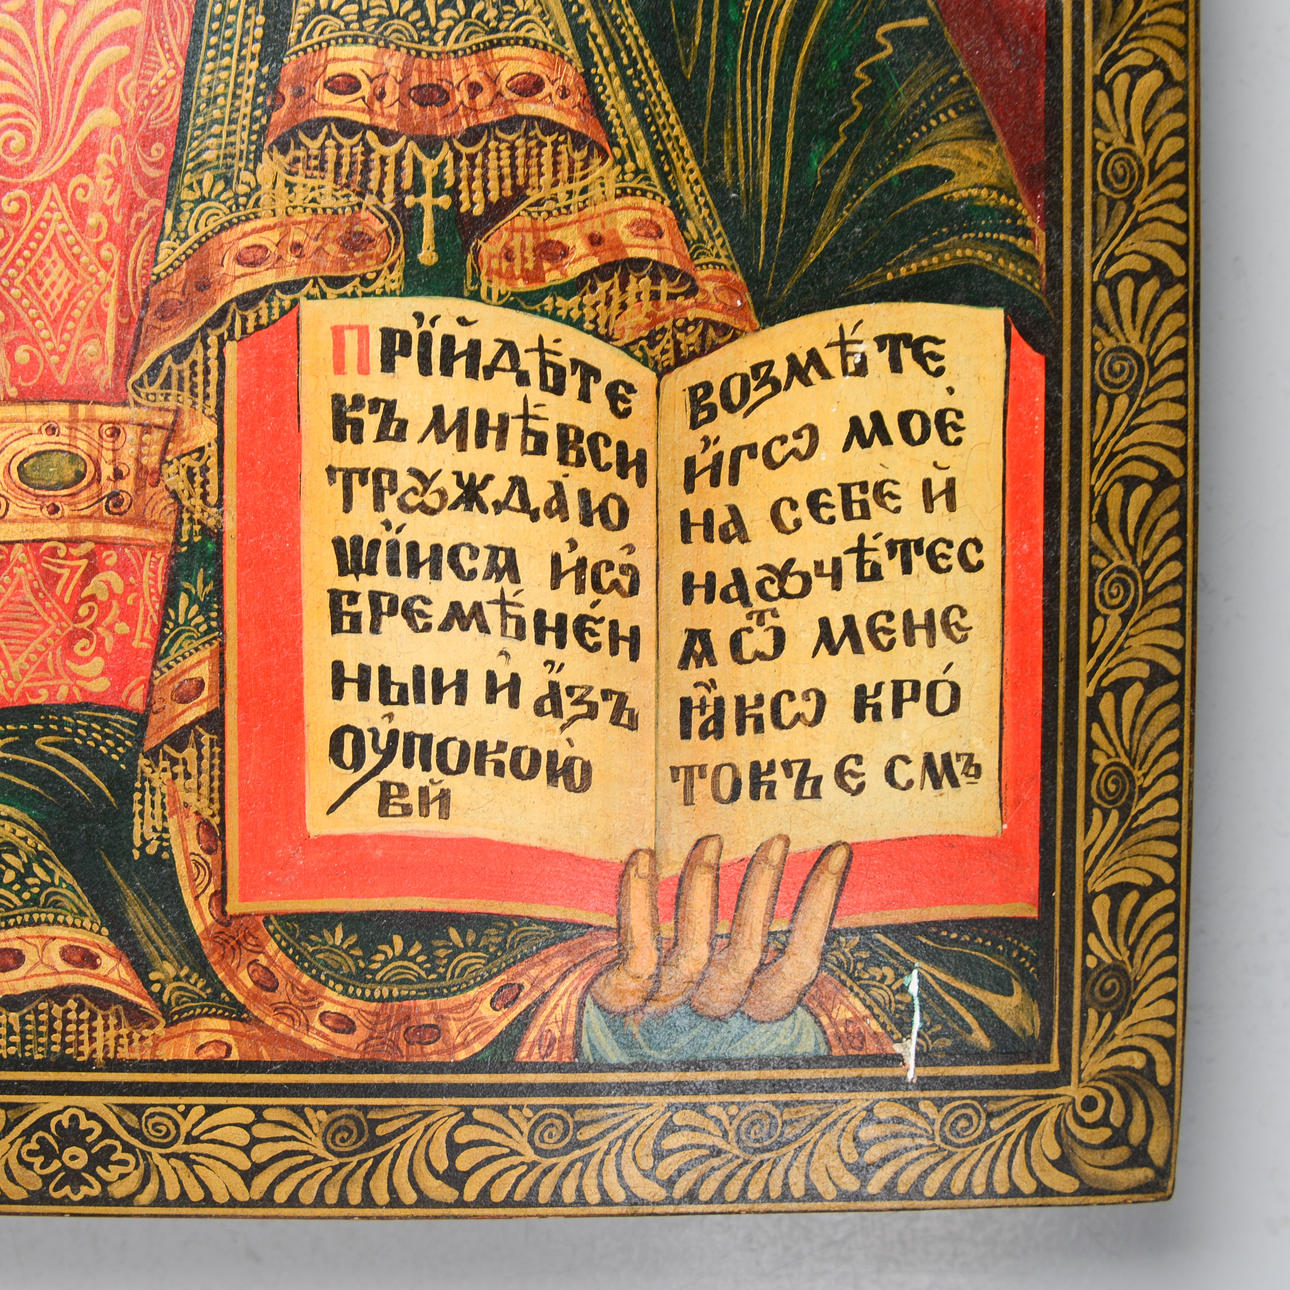 Прїйдѣте
къ мнѣ вси
трꙋждаю
щїися и҆сѡ
бремѣнен
ныи и҆ а҆зъ
оупокою
вй
возмѣте
и҆гсѡ мое
на себе й
наꙋчѣтес
ѧ ѿ мене
ꙗ҆ксѡ кро
токъ єсмъ